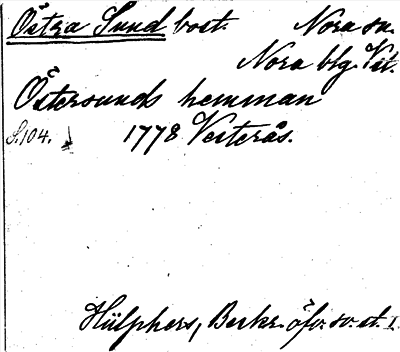 Östra Sund bost. Nora sn.
Nora blg. Vst.
Östersunds hemman
S.104. 1778 Vesterås.
Hülphers, Berkr. öfv. sv. st. I.